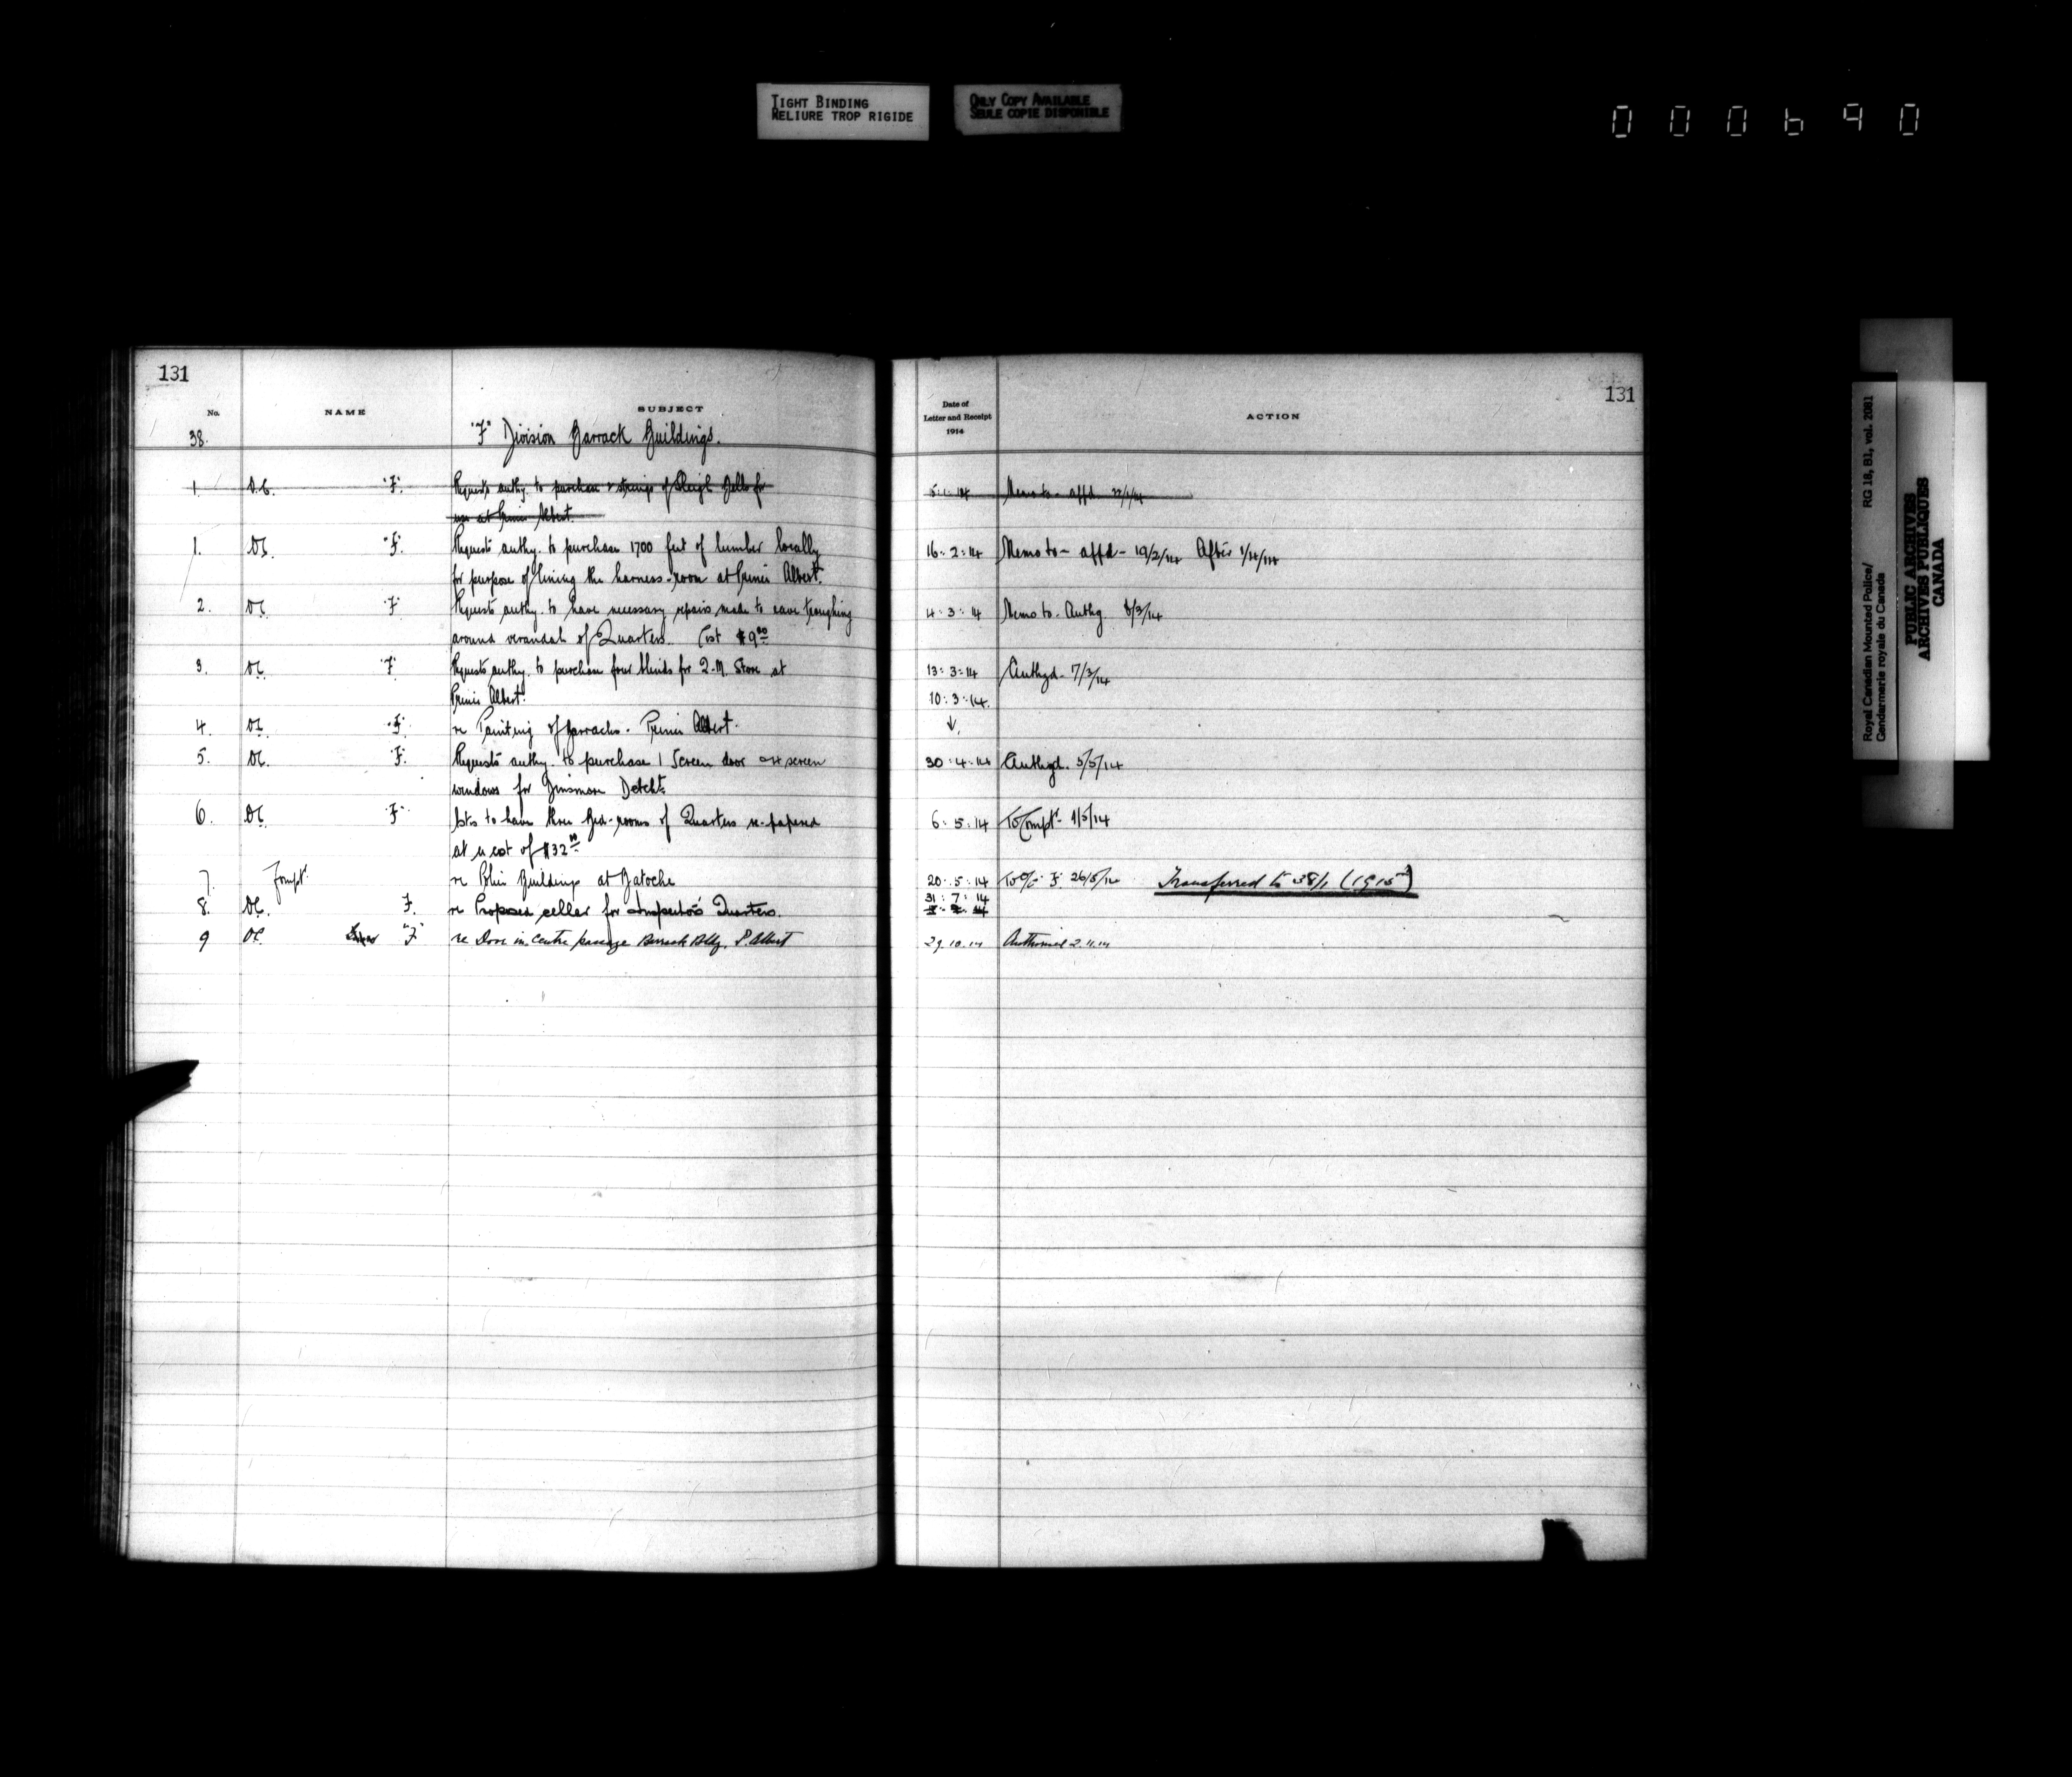 TIGHT BINDING
RELIURE TROP RIGIDE
ONLY COPY AVAILABLE
SEULE COPIE DISPONIBLE
000690
131
No. NAME SUBJECT
38. "F" Division Barrack Buildings.
1. O.C. "F". Requests authy. to purchase strings of Sleigh Bells for
use at Prince Albert.
1. OC. "F". Requests authy. to purchase 1700 feet of lumber locally
for purpose of lining the harness-room at Prince Albert.
2. OC "F" Requests authy. to have necessary repairs made to eave troughing
around verandah of Quarters. Cost $9.00
3. OC "F" Requests authy. to purchase four blinds for Q.M. Store at
Prince Albert.
4. OC "F" re Painting of Barracks. Prince Albert.
5. OC. F. Requests authy. to purchase 1 Screen door screen
windows for Dinsmore Detcht.
6. OC "F" to have three Bed-rooms of Quarters re-papered
at a cost of $32.00
7. Compt. re Police Buildings at Batoche
8. OC. F. re Proposed cellar for Inspector's Quarters.
9 OC "F" re Door in centre passage Barrack Bldg. P. Albert
131
Date of
Letter and Receipt
1914
ACTION
5:1:14 Memo to - affd 22/1/14
16:2:14 Memo to - affd - 19/2/14 After 1/4/14
4:3:14 Memo to. Authg. 8/3/14
13:3:14 Authgd. 17/3/14
10:3:14.
30:4:14 Authgd. 5/5/14
6:5:14 To Compt. 1/5/14
20:5:14 To O/C F 26/5/14 Transferred to 38/1 (1915)
31:7:14
29.10.14 Authorised 2.11.14
Royal Canadian Mounted Police/ RG 18, B1, vol. 2081
Gendarmerie royale du Canada
PUBLIC ARCHIVES
ARCHIVES PUBLIQUES
CANADA